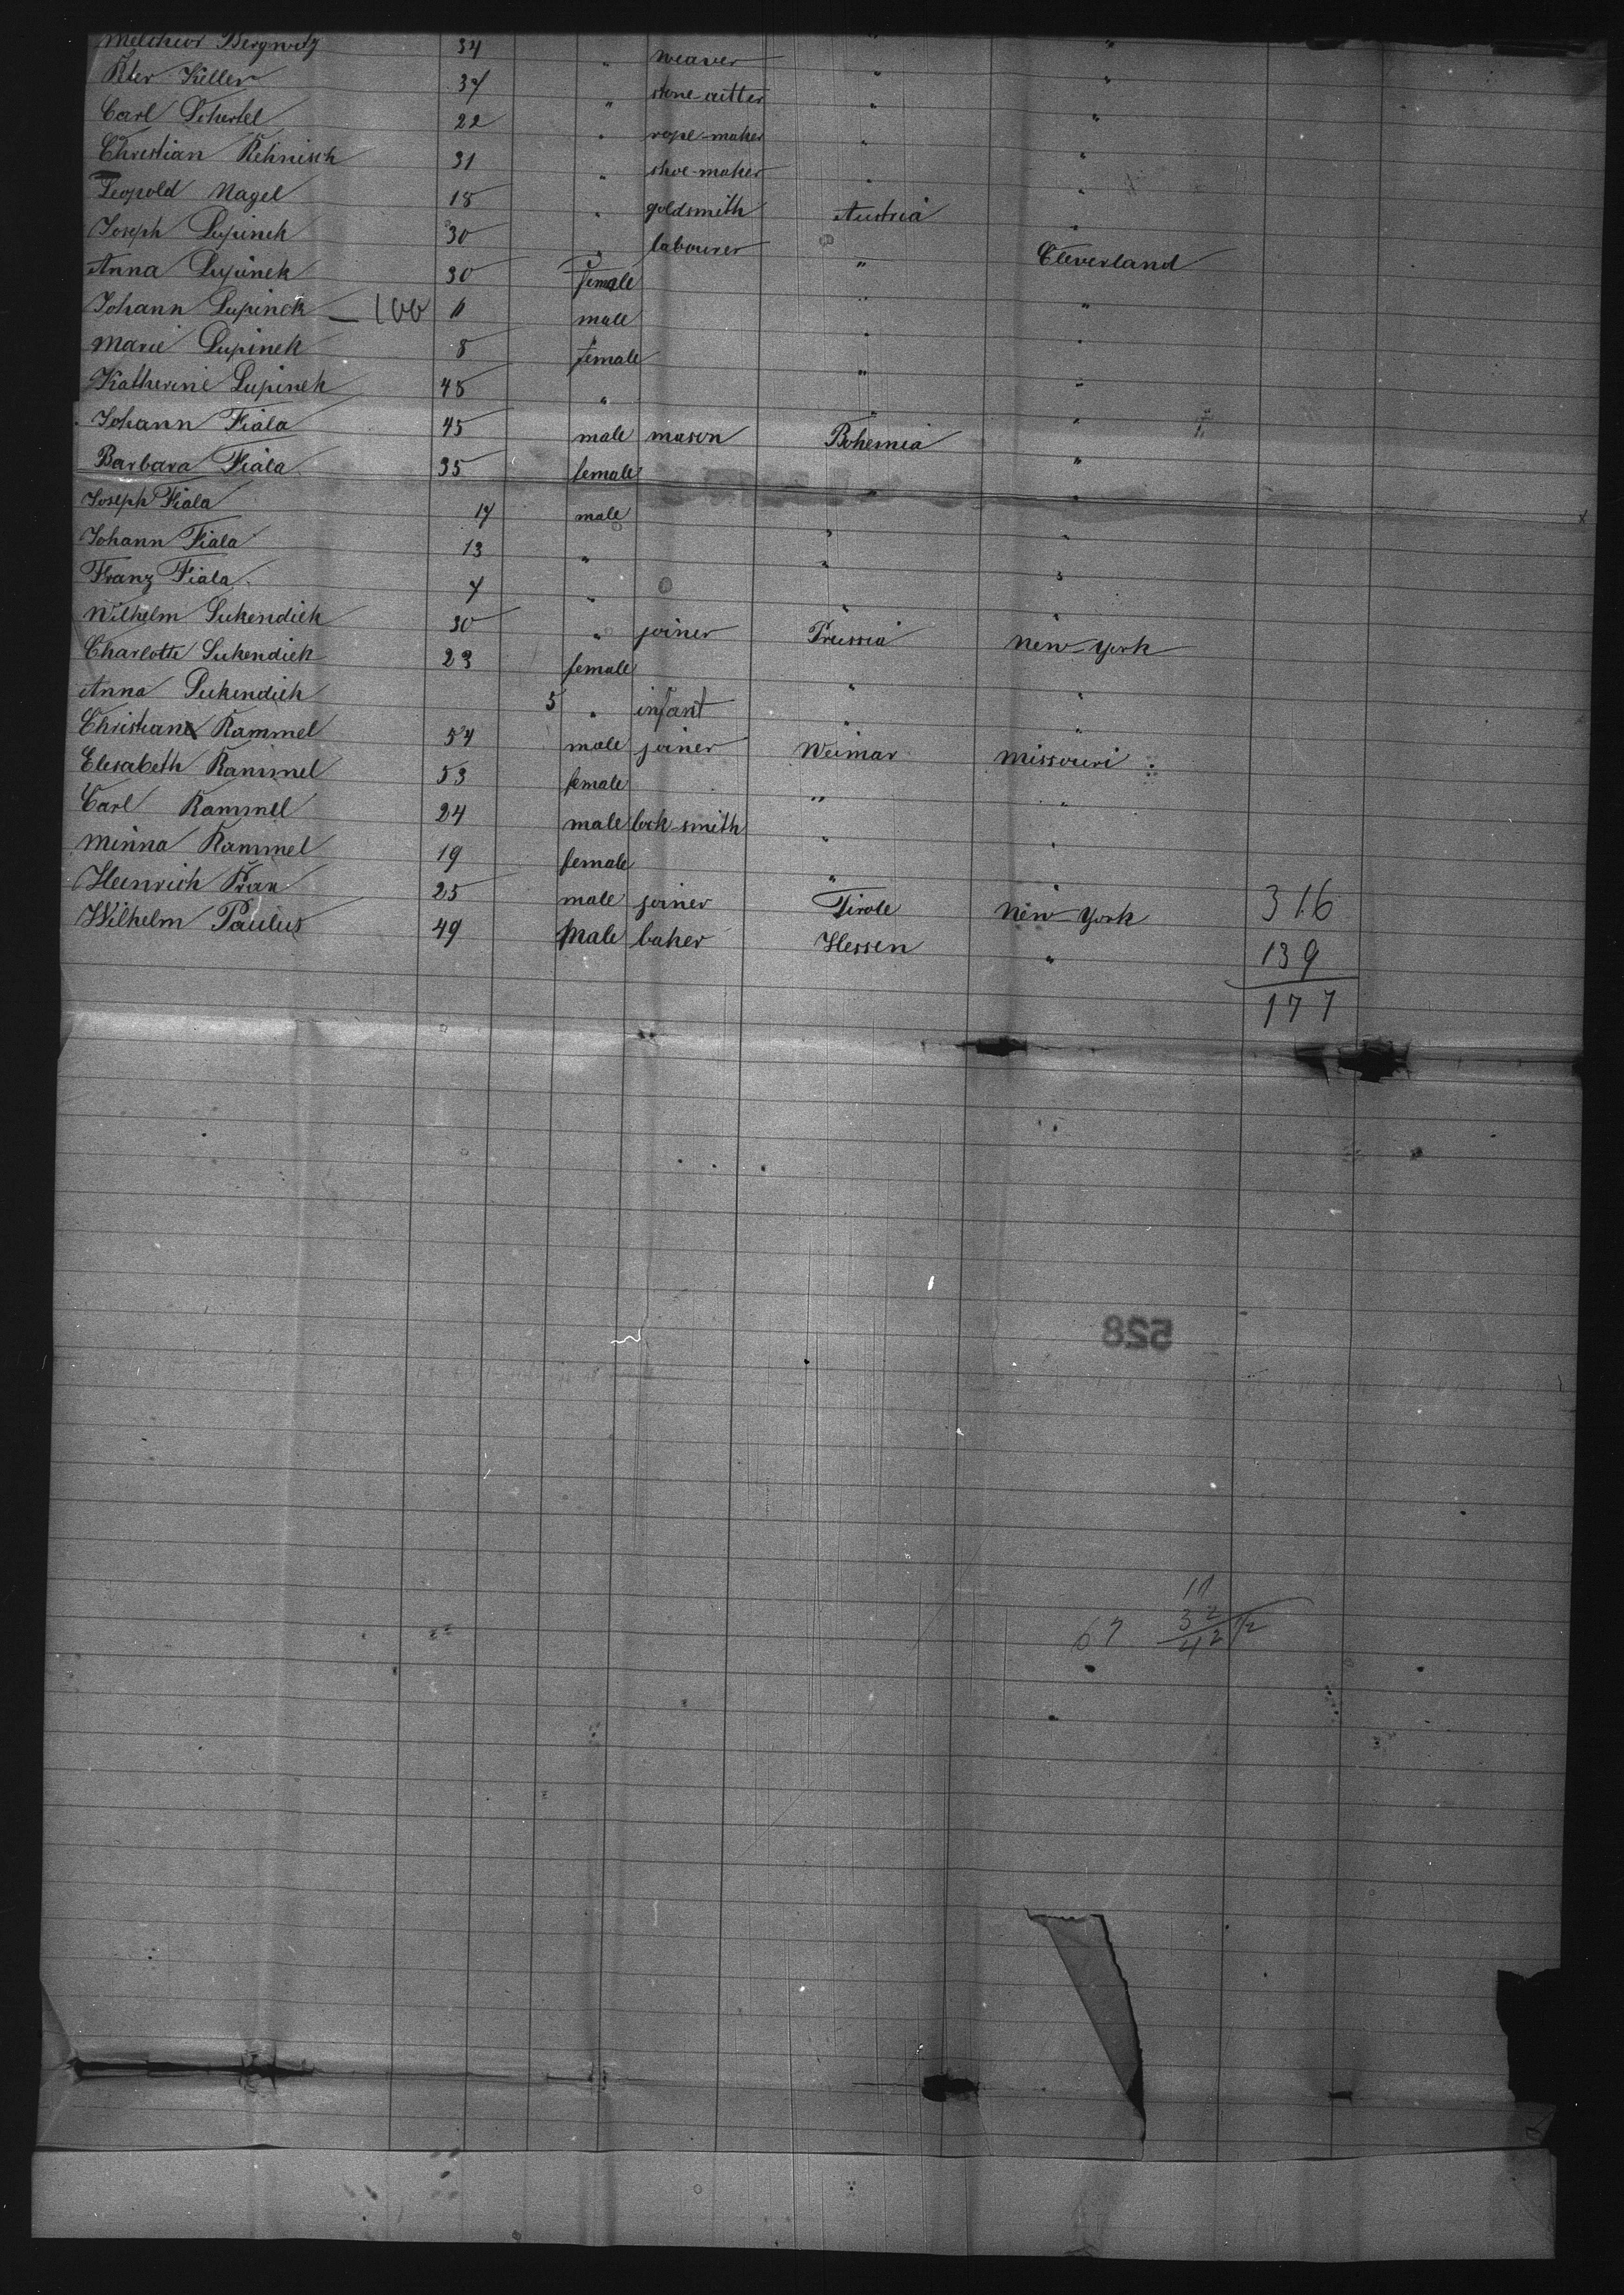 Melchior Bergwitz 34 " weaver " "
Peter Keller 37 " stone-cutter " "
Carl 22 " rope-maker " "
Christian Rehnisch 31 " shoe-maker " "
Leopold Nagel 18 " goldsmith Austria "
Joseph Lupinek 30 " labourer " Cleverland
Anna Lupinek 30 female " "
Johann Lupinek — 100 11 male " "
Marie Lupinek 8 female " "
Katherine Lupinek 48 " " "
Johann Fiala 45 male mason Bohemia "
Barbara Fiala 35 female " "
Joseph Fiala 17 male " "
Johann Fiala 13 " " "
Franz Fiala 7 " " "
Wilhelm Sukendiek 30 " joiner Prussia New-York
Charlotte Sukendiek 23 female " "
Anna Sukendiek 5 " infant " "
Christian Rammel 54 male joiner Weimar Missouri
Elisabeth Rammel 53 female " "
Carl Rammel 24 male lock-smith " "
Minna Rammel 19 female " "
Heinrich 25 male joiner Tirole New-York 316
Wilhelm Paulus 49 male baker Hessen " 139
177
528
10
67 32
42 1/2